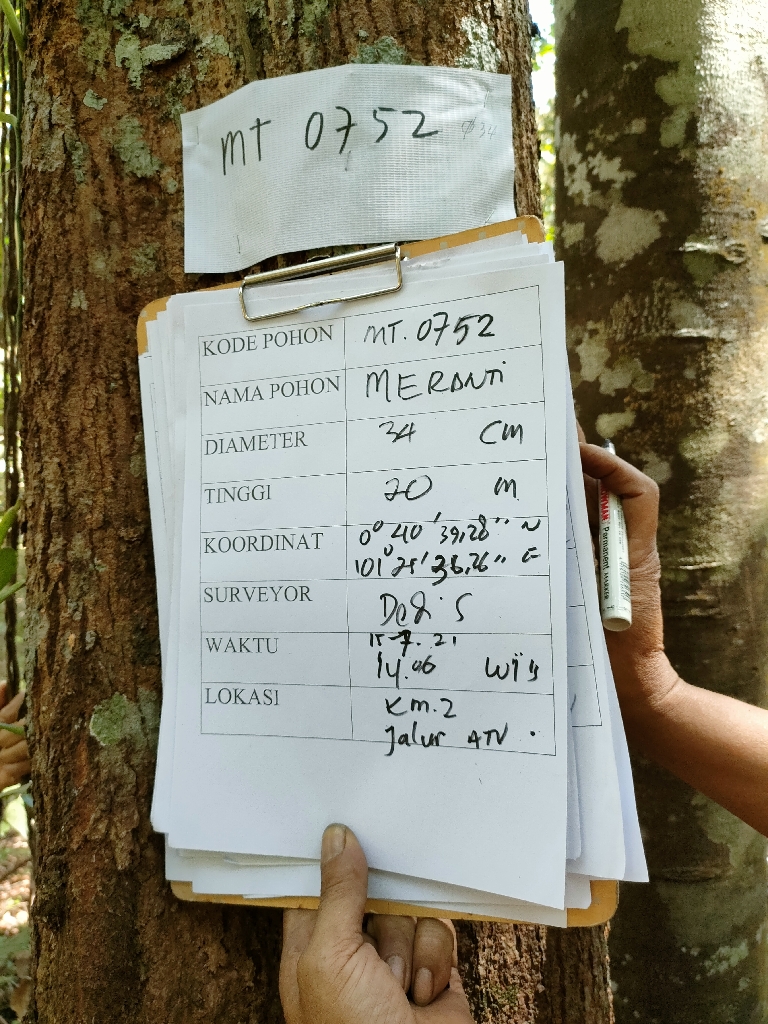 MT 0752 Ø 34
KODE POHON MT. 0752
NAMA POHON MERANTI
DIAMETER 34 CM
TINGGI 20 M
KOORDINAT 0° 40' 39,28" N
101° 25' 36,26" E
SURVEYOR
WAKTU 15-7. 21
14.06 WIB
LOKASI Km.2
Jalur ATV.
Permanent Marker